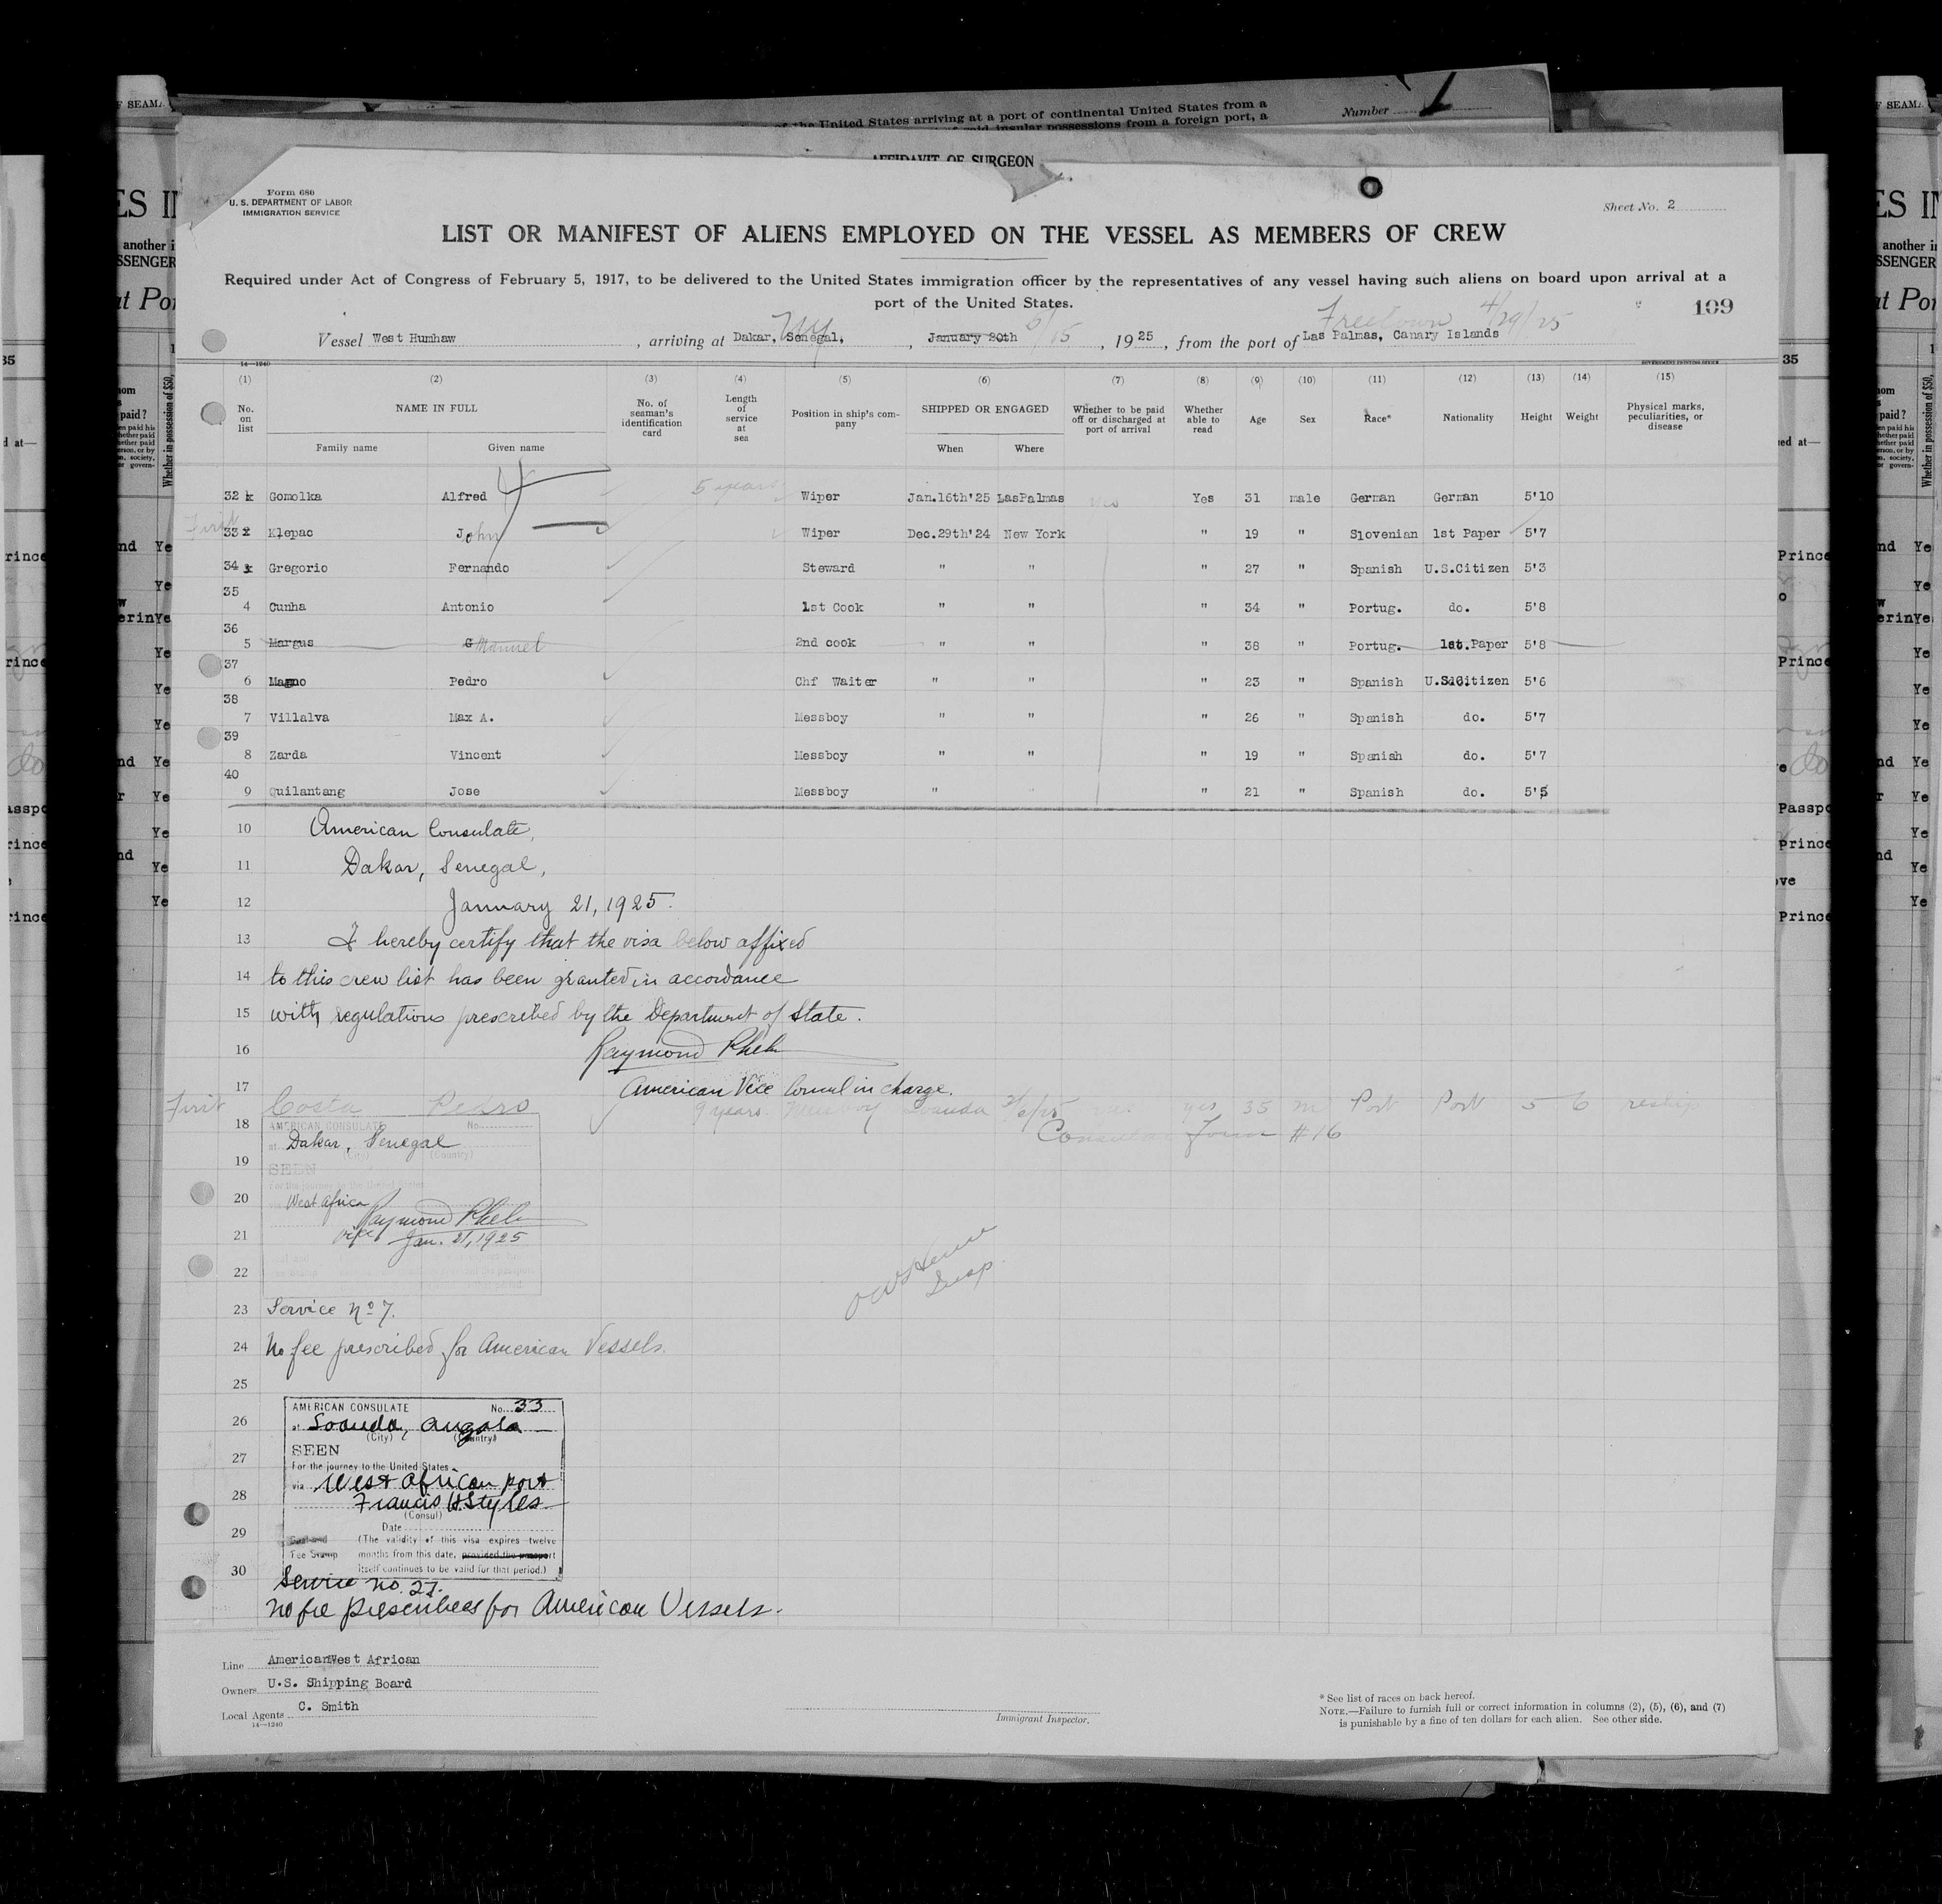 of the United States arriving at a port of continental United States from a
said insular possessions from a foreign port, a
Number 1
AFFIDAVIT OF SURGEON
Form 680
U. S. DEPARTMENT OF LABOR
IMMIGRATION SERVICE
Sheet No. 2
LIST OR MANIFEST OF ALIENS EMPLOYED ON THE VESSEL AS MEMBERS OF CREW
Required under Act of Congress of February 5, 1917, to be delivered to the United States immigration officer by the representatives of any vessel having such aliens on board upon arrival at a
port of the United States.
109
NY 5/15 Freetown 4/29/25
Vessel West Humhaw, arriving at Dakar, Senegal, January 20th, 1925, from the port of Las Palmas, Canary Islands
14—1240 GOVERNMENT PRINTING OFFICE
(1) (2) (3) (4) (5) (6) (7) (8) (9) (10) (11) (12) (13) (14) (15)
No. on list NAME IN FULL No. of seaman's identification card Length of service at sea Position in ship's company SHIPPED OR ENGAGED Whether to be paid off or discharged at port of arrival Whether able to read Age Sex Race* Nationality Height Weight Physical marks, peculiarities, or disease
Family name Given name When Where
32 Gomolka Alfred 5 years Wiper Jan.16th'25 LasPalmas Yes 31 male German German 5'10
First
33 Klepac John Wiper Dec.29th'24 New York " 19 " Slovenian 1st Paper 5'7
34 Gregorio Fernando Steward " " " 27 " Spanish U.S.Citizen 5'3
35
4 Cunha Antonio 1st Cook " " " 34 " Portug. do. 5'8
36
5 Margus G Manuel 2nd cook " " " 38 " Portug. 1st.Paper 5'8
37
6 Magno Pedro Chf Waiter " " " 23 " Spanish U.S.Citizen 5'6
38
7 Villalva Max A. Messboy " " " 26 " Spanish do. 5'7
39
8 Zarda Vincent Messboy " " " 19 " Spanish do. 5'7
40
9 Quilantang Jose Messboy " " " 21 " Spanish do. 5'5
10 American Consulate,
11 Dakar, Senegal,
12 January 21, 1925.
13 I hereby certify that the visa below affixed
14 to this crew list has been granted in accordance
15 with regulations prescribed by the Department of State.
16 Raymond Phelan
17 American Vice Consul in charge.
First Costa Pedro 9 years Messboy Loanda 3/6/25 yes yes 35 m Port Port 5 6 reship
Consular Form #16
18 AMERICAN CONSULATE No.
at Dakar, Senegal
(City) (Country)
19 SEEN
For the journey to the United States
20 West Africa
Raymond Phelan
21 Vice Jan. 21, 1925
22
23 Service No 7.
24 No fee prescribed for American Vessels.
25
AMERICAN CONSULATE No. 33
26 at Loanda, Angola
(City) (Country)
27 SEEN
For the journey to the United States
via West African port
28 Francis H. Styles
(Consul)
Date
29 Seal and Fee Stamp (The validity of this visa expires twelve
months from this date, provided the passport
30 itself continues to be valid for that period.)
Service no. 27.
no fee prescribed for American Vessels.
Line AmericanWest African
Owners U.S. Shipping Board
Local Agents C. Smith
14—1240
Immigrant Inspector.
* See list of races on back hereof.
NOTE.—Failure to furnish full or correct information in columns (2), (5), (6), and (7)
is punishable by a fine of ten dollars for each alien. See other side.